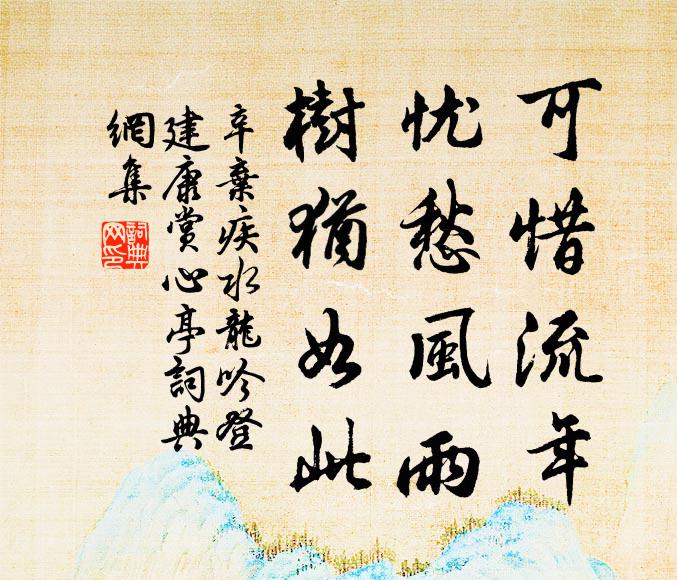 可惜流年
忧愁風雨
樹猶如此
辛棄疾水龍吟登
建康賞心亭詞典
網集
詞典
网印